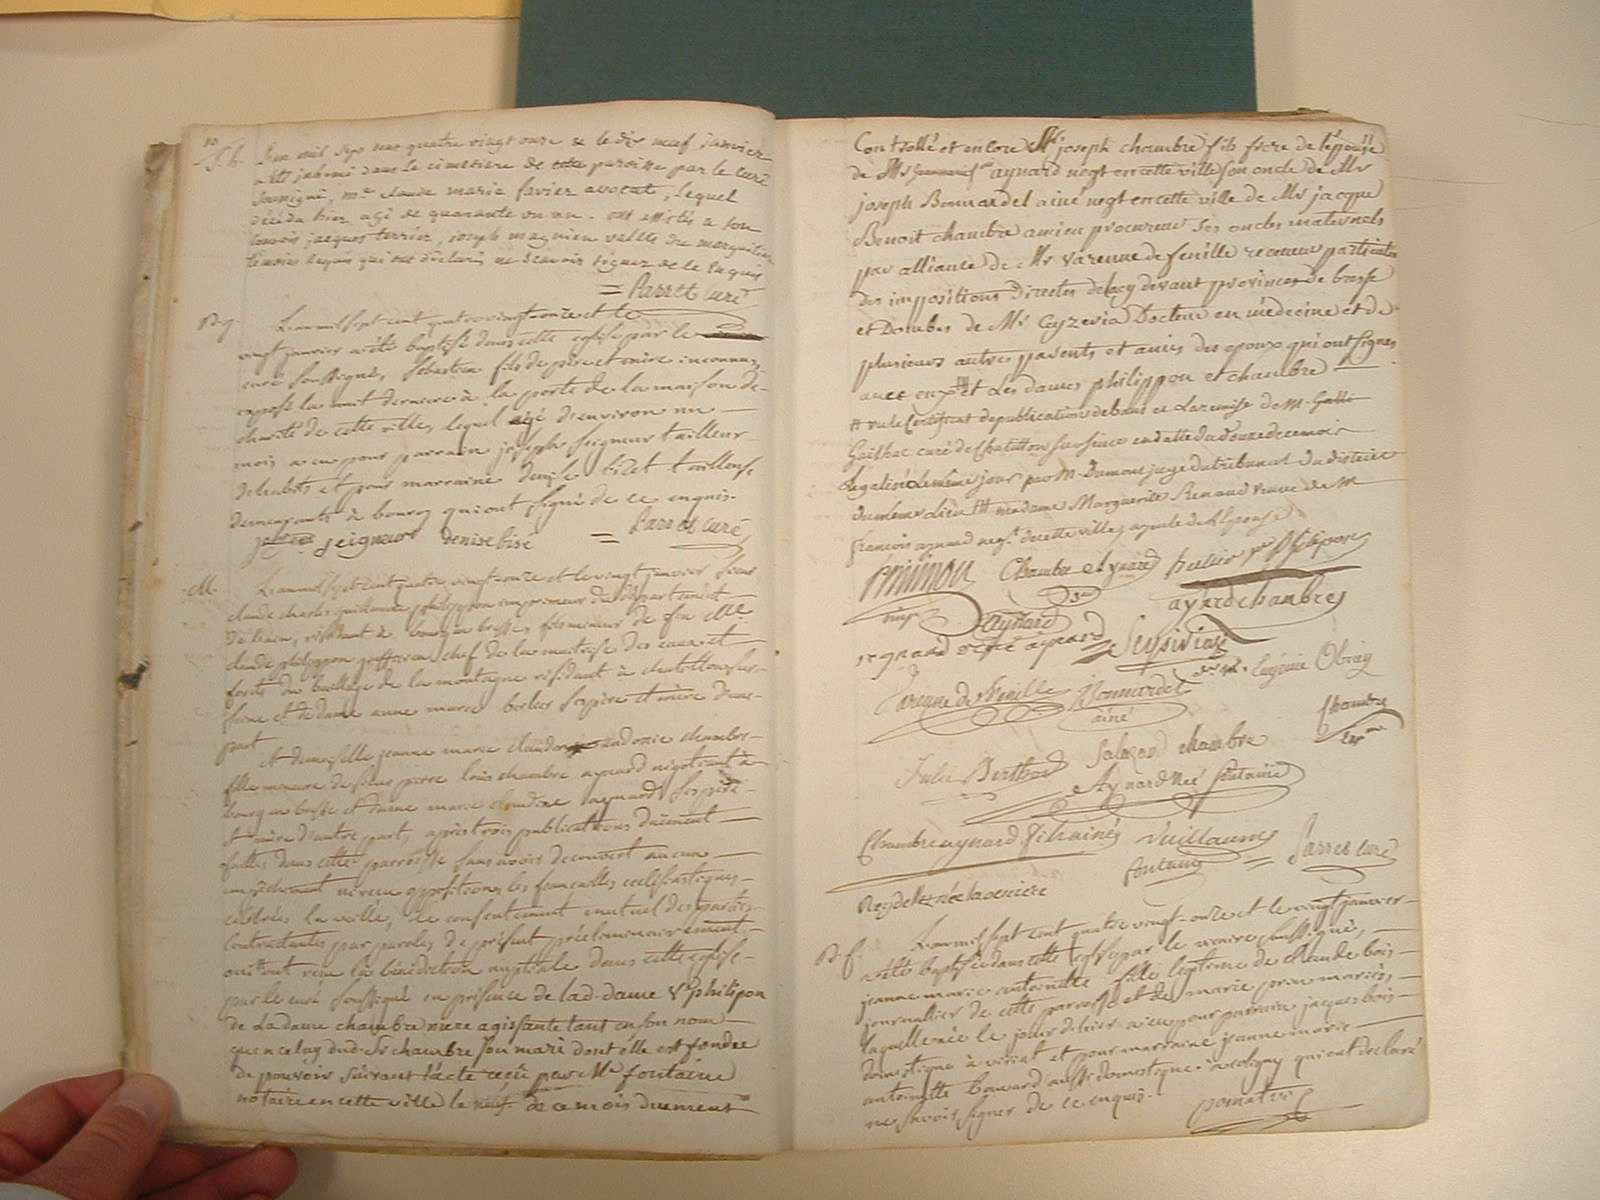 10
S. h.
L'an mil sept cent quatre vingt onze & le dix neuf janvier
a été inhumé dans le cimetiere de cette paroisse par le curé
soussigné, me claude marie favier avocat, lequel
décéda hier agé de quarante un an. ont assistés a son
convois jacques terrier, joseph magnien vallets du marguillier
témoins requis qui ont déclarés ne scavoir signer de ce enquis
= Parret curé
B. g.
L'an mil sept cent quatre vingt-onze et le
vingt janvier a été baptisé dans cette eglise par le
curé soussigné, Sébastien fils de pere et mere inconnus,
exposé la nuit derniere à la porte de la maison de
charité de cette ville, lequel agé d'environ un
mois a eu pour parrain joseph seigneur tailleur
d'habits et pour marraine denise bizet tailleuse
demeurants à bourg qui ont signé de ce enquis.
joseph seigneur denise bisé = Parret curé
M.
L'an mil sept cent quatre vingt-onze et le vingt janvier sieur
claude charles guillaume philippon imprimeur du département
de l'ain, résidant à bourg en bresse, fils mineur de feu Me
claude philippon greffier en chef de la maitrise des eaux et
forets du bailliage de la montagne résidant à chatillon sur
seine et de dame anne marie ses pere et mere d'une
part
Et demoiselle jeanne marie chambre
fille mineure de sieur pierre louis chambre aynard négotiant à
bourg en bresse et dame marie claudine aynard ses pere
et mere d'autre part, après trois publications duëment
faittes dans cette parroisse sans avoir decouvert aucun
empêchement ni reçu oppositions, les fiançailles ecclésiastiques
célébrées la veille, le consentement mutuel des parties
contractantes par paroles de présent préliminairement
ouï ont reçu la bénédiction nuptiale dans cette eglise
par le curé soussigné en présence de lad. dame Ve philipon
de La dame chambre mere agissante tant en son nom
qu'en celuy dud. Sr chambre son mari dont elle est fondée
de pouvoir suivant l'acte reçu par Me fontaine
notaire en cette ville le neuf de ce mois duement
Controllé et encore Mr joseph chambre fils frere de l'épouse
de Mr aynard negt en cette ville son oncle de Mr
joseph Bonnardel ainé negt en cette ville de Mr jacque
Benoit chambre ancien procureur ses oncles maternels
par alliance de Mr Varenne de fenille receveur particulier
des impositions Directes de cy devant provinces de bresse
et Dombes de Mr Ceyzeria Docteur en médecine et de
plusieurs autres parents et amis des epoux qui ont signés
avec eux et Les dames philippon et chambre
# vu le Certificat de publication de bans et La remise de M.
Gailhac curé de Chatillon sur seine en datte du douze de ce mois
légalisé le même jour par M. Dumont juge du tribunal du district
du même lieu madame Marguerite Renaud veuve de M
françois aynard negt de cette ville, ayeule de l'Epouse
Chambre Aynard Ve Philipon
imp aynard chambre
Aynard
regnard Ve aynard
Varenne de Fenille Bonnardel
ainé
D. M. Eugénie
Chambre
Julie chambre
Aynard Née fontaine
Chambre aynard fils ainé Vuillaume
fontaine = Parret curé
Reydellet née
B. f.
L'an mil sept cent quatre vingt-onze et le vingt janvier
a été baptisée dans cette eglise par le vicaire soussigné,
jeanne marie antoinette fille legitime de claude bois
journallier de cette paroisse et de marie prin mariés,
laquelle née le jour d'hier a eu pour parrain jacques bois
domestique à viriat et pour marraine jeanne marie
antoinette bouvard aussi domestique a coligny qui ont declaré
ne savoir signer de ce enquis.
pomatvi